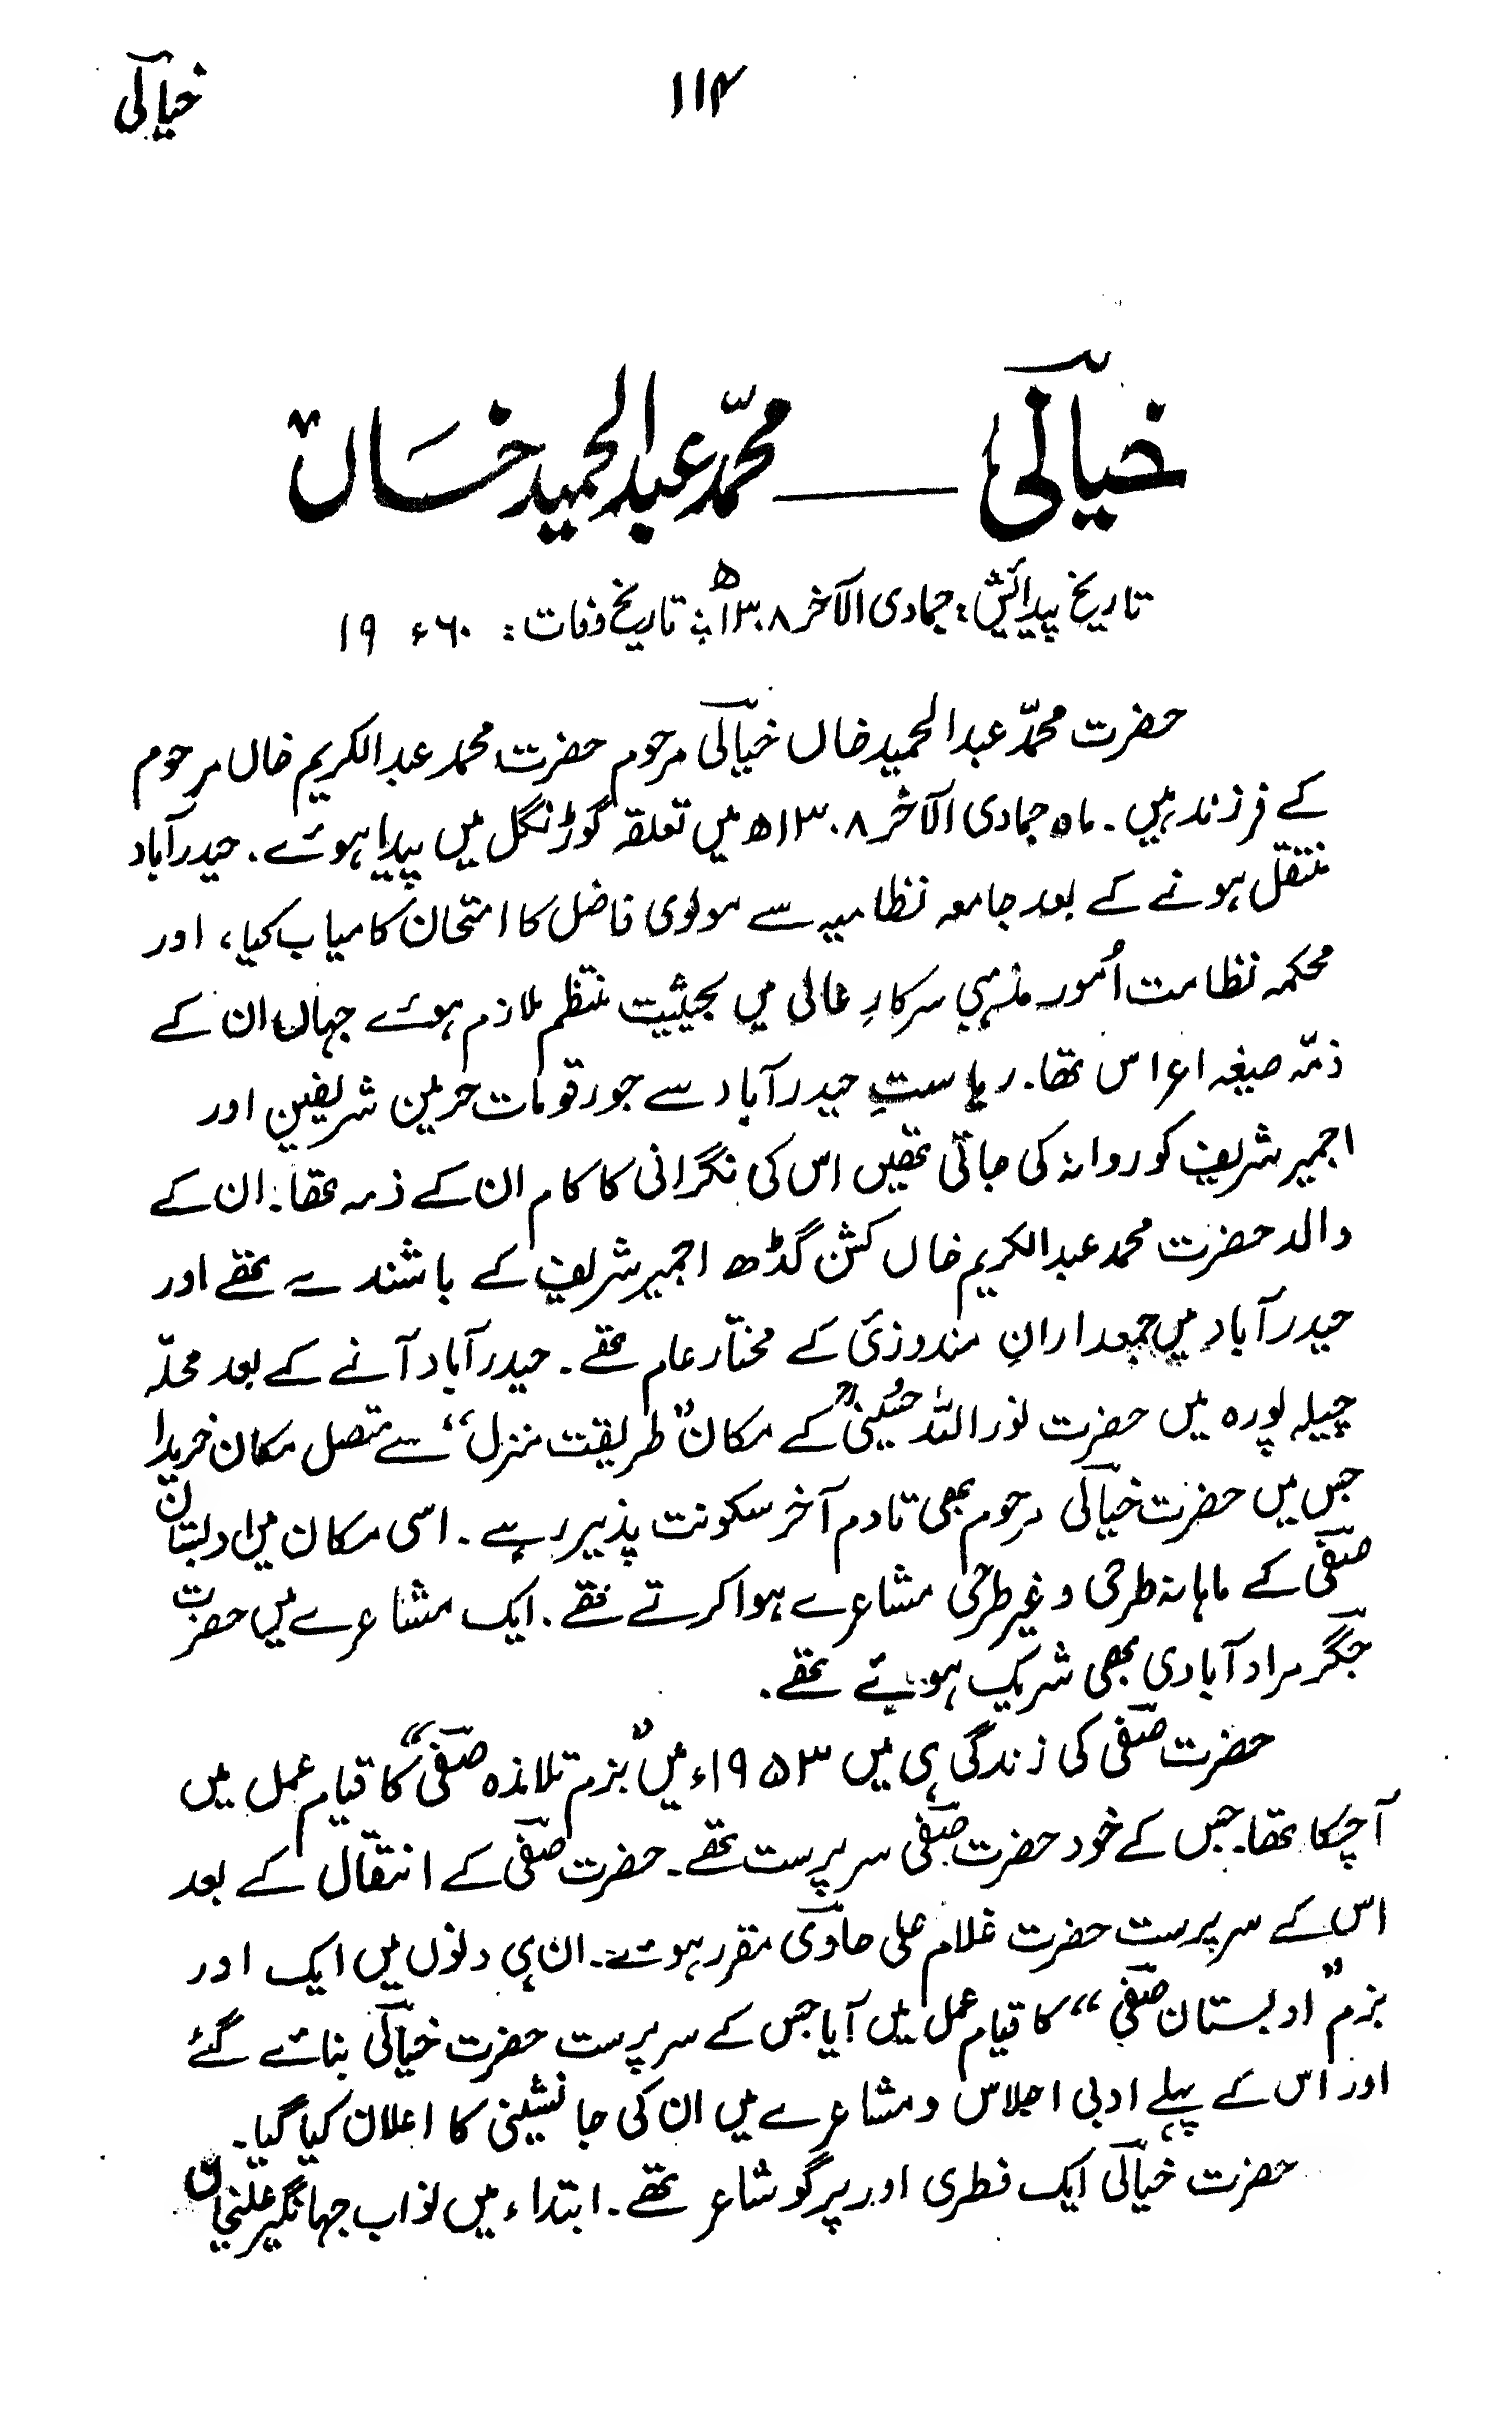 ۱۱۴
خیالؔی
خیالؔی ــــــ محمّد عبدالحمید خاں
تاریخ پیدائش: جمادی الآخر ۱۳۰۸ھ؛ تاریخ وفات: ۱۹۶۰ء
حضرت محمّد عبدالحمید خاں خیالؔی مرحوم حضرت محمد عبدالکریم خاں مرحوم
کے فرزند ہیں۔ ماہ جمادی الآخر ۱۳۰۸ھ میں تعلقہ کوڑنگل میں پیدا ہوئے۔ حیدرآباد
منتقل ہونے کے بعد جامعہ نظامیہ سے مولوی فاضل کا امتحان کامیاب کیا، اور
محکمہ نظامت اُمور مذہبی سرکارِ عالی میں بحیثیت منتظم ملازم ہوئے جہاں ان کے
ذمّہ صیغہ اعراس تھا۔ ریاستِ حیدرآباد سے جو رقومات حرمین شریفین اور
اجمیر شریف کو روانہ کی جاتی تھیں اس کی نگرانی کا کام ان کے ذمہ تھا۔ ان کے
والد حضرت محمد عبدالکریم خاں کشن گڈھ اجمیر شریف کے باشندے تھے اور
حیدرآباد میں جمعدارانِ مندوزئی کے مختار عام تھے۔ حیدرآباد آنے کے بعد محلہّ
چیلہ پورہ میں حضرت نور اللہ حُسینیؒ کے مکان ”طریقت منزل“ سے متصل مکان خریدا
جس میں حضرت خیالؔی مرحوم بھی تادم آخر سکونت پذیر رہے۔ اسی مکان میں ادبستان
صفؔی کے ماہانہ طرحی و غیر طرحی مشاعرے ہوا کرتے تھے۔ ایک مشاعرے میں حضرت
جگؔر مراد آبادی بھی شریک ہوئے تھے۔
حضرت صفؔی کی زندگی ہی میں ۱۹۵۳ء میں ”بزم تلامذہ صفؔی“ کا قیام عمل میں
آچکا تھا۔ جس کے خود حضرت صفؔی سرپرست تھے۔ حضرت صفؔی کے انتقال کے بعد
اس کے سرپرست حضرت غلام علی حاوؔی مقرر ہوئے۔ ان ہی دنوں میں ایک اور
بزم ”ادبستان صفؔی“ کا قیام عمل میں آیا جس کے سرپرست حضرت خیالؔی بنائے گئے
اور اس کے پہلے ادبی اجلاس و مشاعرے میں ان کی جانشینی کا اعلان کیا گیا۔
حضرت خیالؔی ایک فطری اور پرگو شاعر تھے۔ ابتداء میں نواب جہانگیر علیخاں